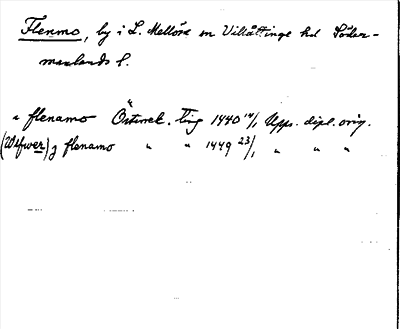 Flenmo, by i L. Mellösa sn Villåttinge hd Söder-
manlands l.
a flenamo Österrek. ting 1440 14/1 Upps. dipl. orig.
(Wlfwer) j flenamo " " 1449 23/1 " " "